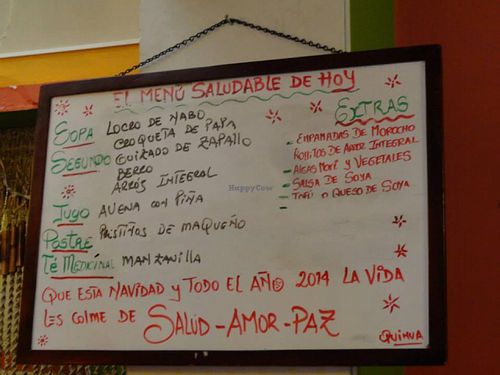 EL MENÚ SALUDABLE DE HOY
SOPA LOCRO DE NABO
CROQUETA DE PAPA
SEGUNDO GUIZADO DE ZAPALLO
BERRO
ARROS INTEGRAL
JUGO AVENA CON PIÑA
POSTRE PASTIÑOS DE MAQUEÑO
TÉ MEDICINAL MANZANILLA
EXTRAS
- EMPANADAS DE MOROCHO
ROLLITOS DE ARROZ INTEGRAL
- ALGAS NORI Y VEGETALES
- SALSA DE SOYA
- TOFÚ O QUESO DE SOYA
QUE ESTA NAVIDAD Y TODO EL AÑO 2014 LA VIDA
LES COLME DE SALUD - AMOR - PAZ
QUIHUA
HappyCow